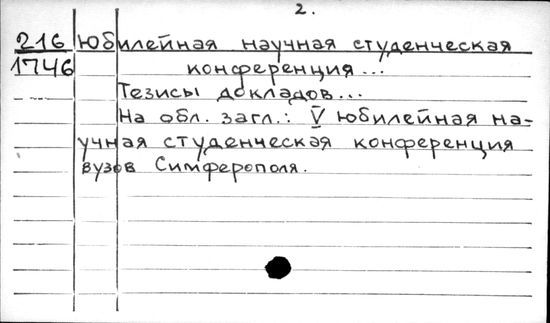 2.
216 Юбилейная научная студенческая
1746 конференция...
Тезисы докладов...
На обл. загл.: V юбилейная на-
учная студенческая конференция
вузов Симферополя.